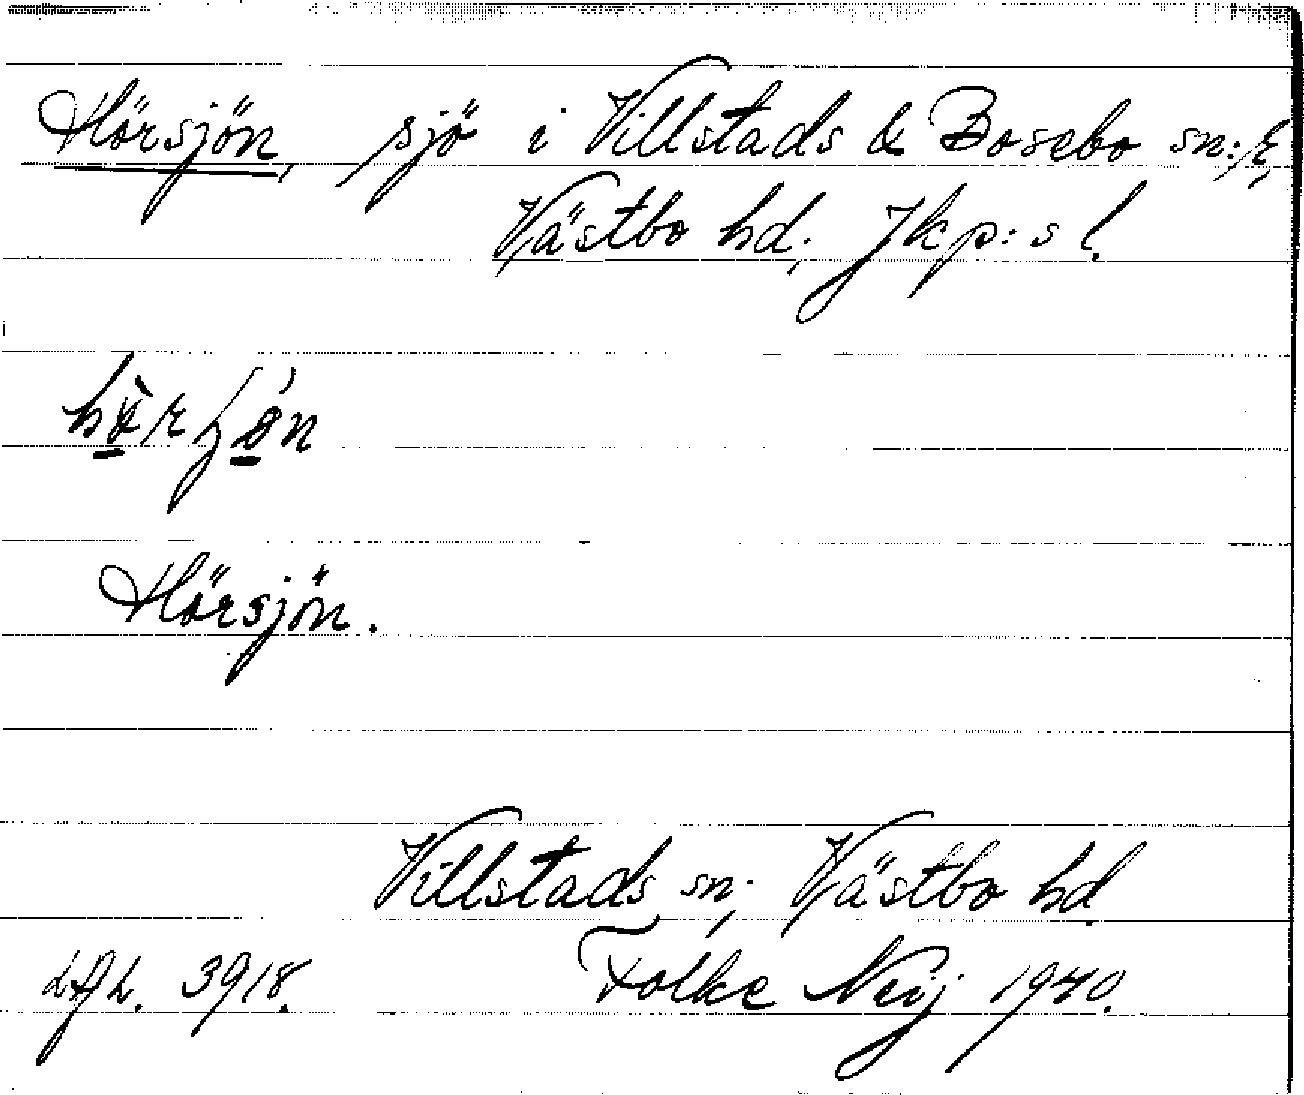 Hörsjön, sjö i Villstads & Bosebo sn:r,
Västbo hd, Jkp:s l.
Hörsjön.
Villstads sn, Västbo hd.
3918. Folke Neij 1940.